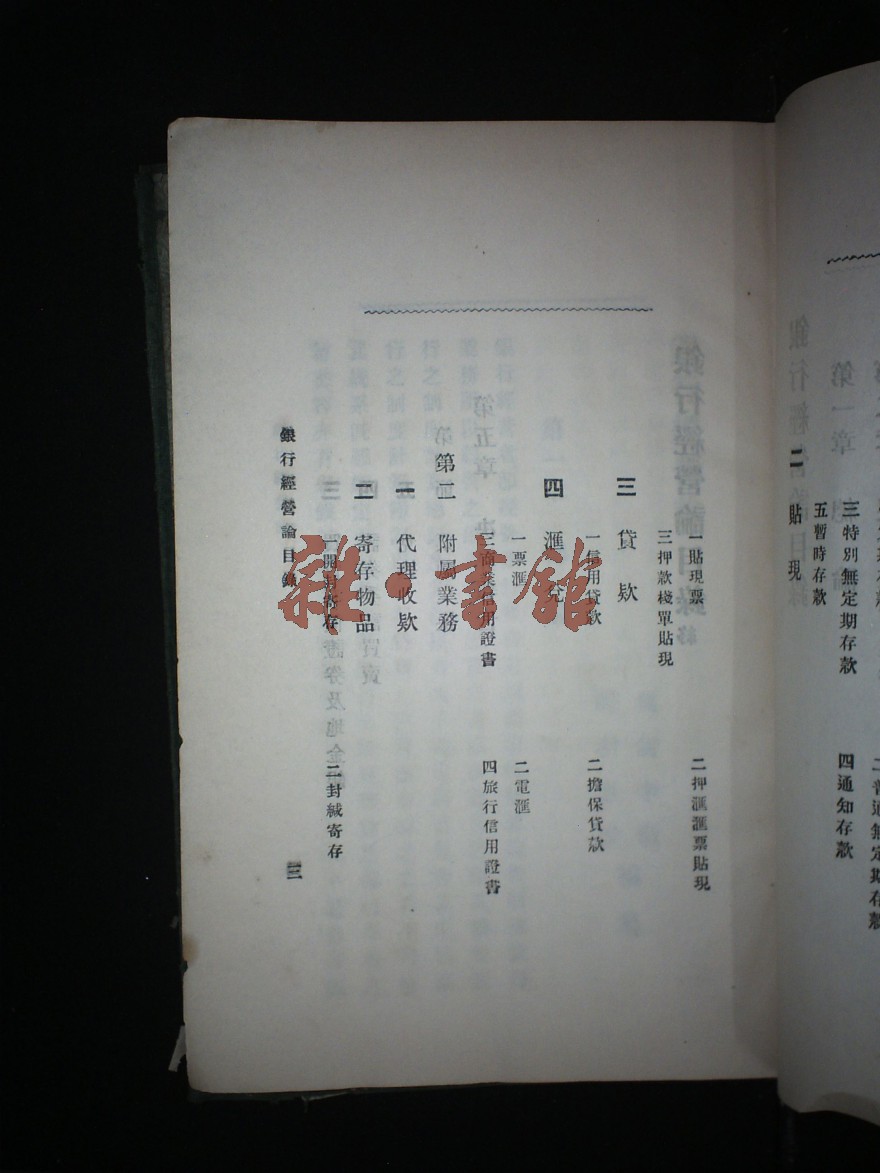 三特別無定期存款
四通知存款
五暫時存款
二 貼現
一貼現票
二押滙滙票貼現
三押款棧單貼現
三 貸款
一信用貸款
二擔保貸款
四 滙兌
一票滙
二電滙
三商業信用證書
四旅行信用證書
第二 附屬業務
一 代理收款
二 寄存物品
一開封寄存
二封緘寄存
銀行經營論目錄
三
雜·書館